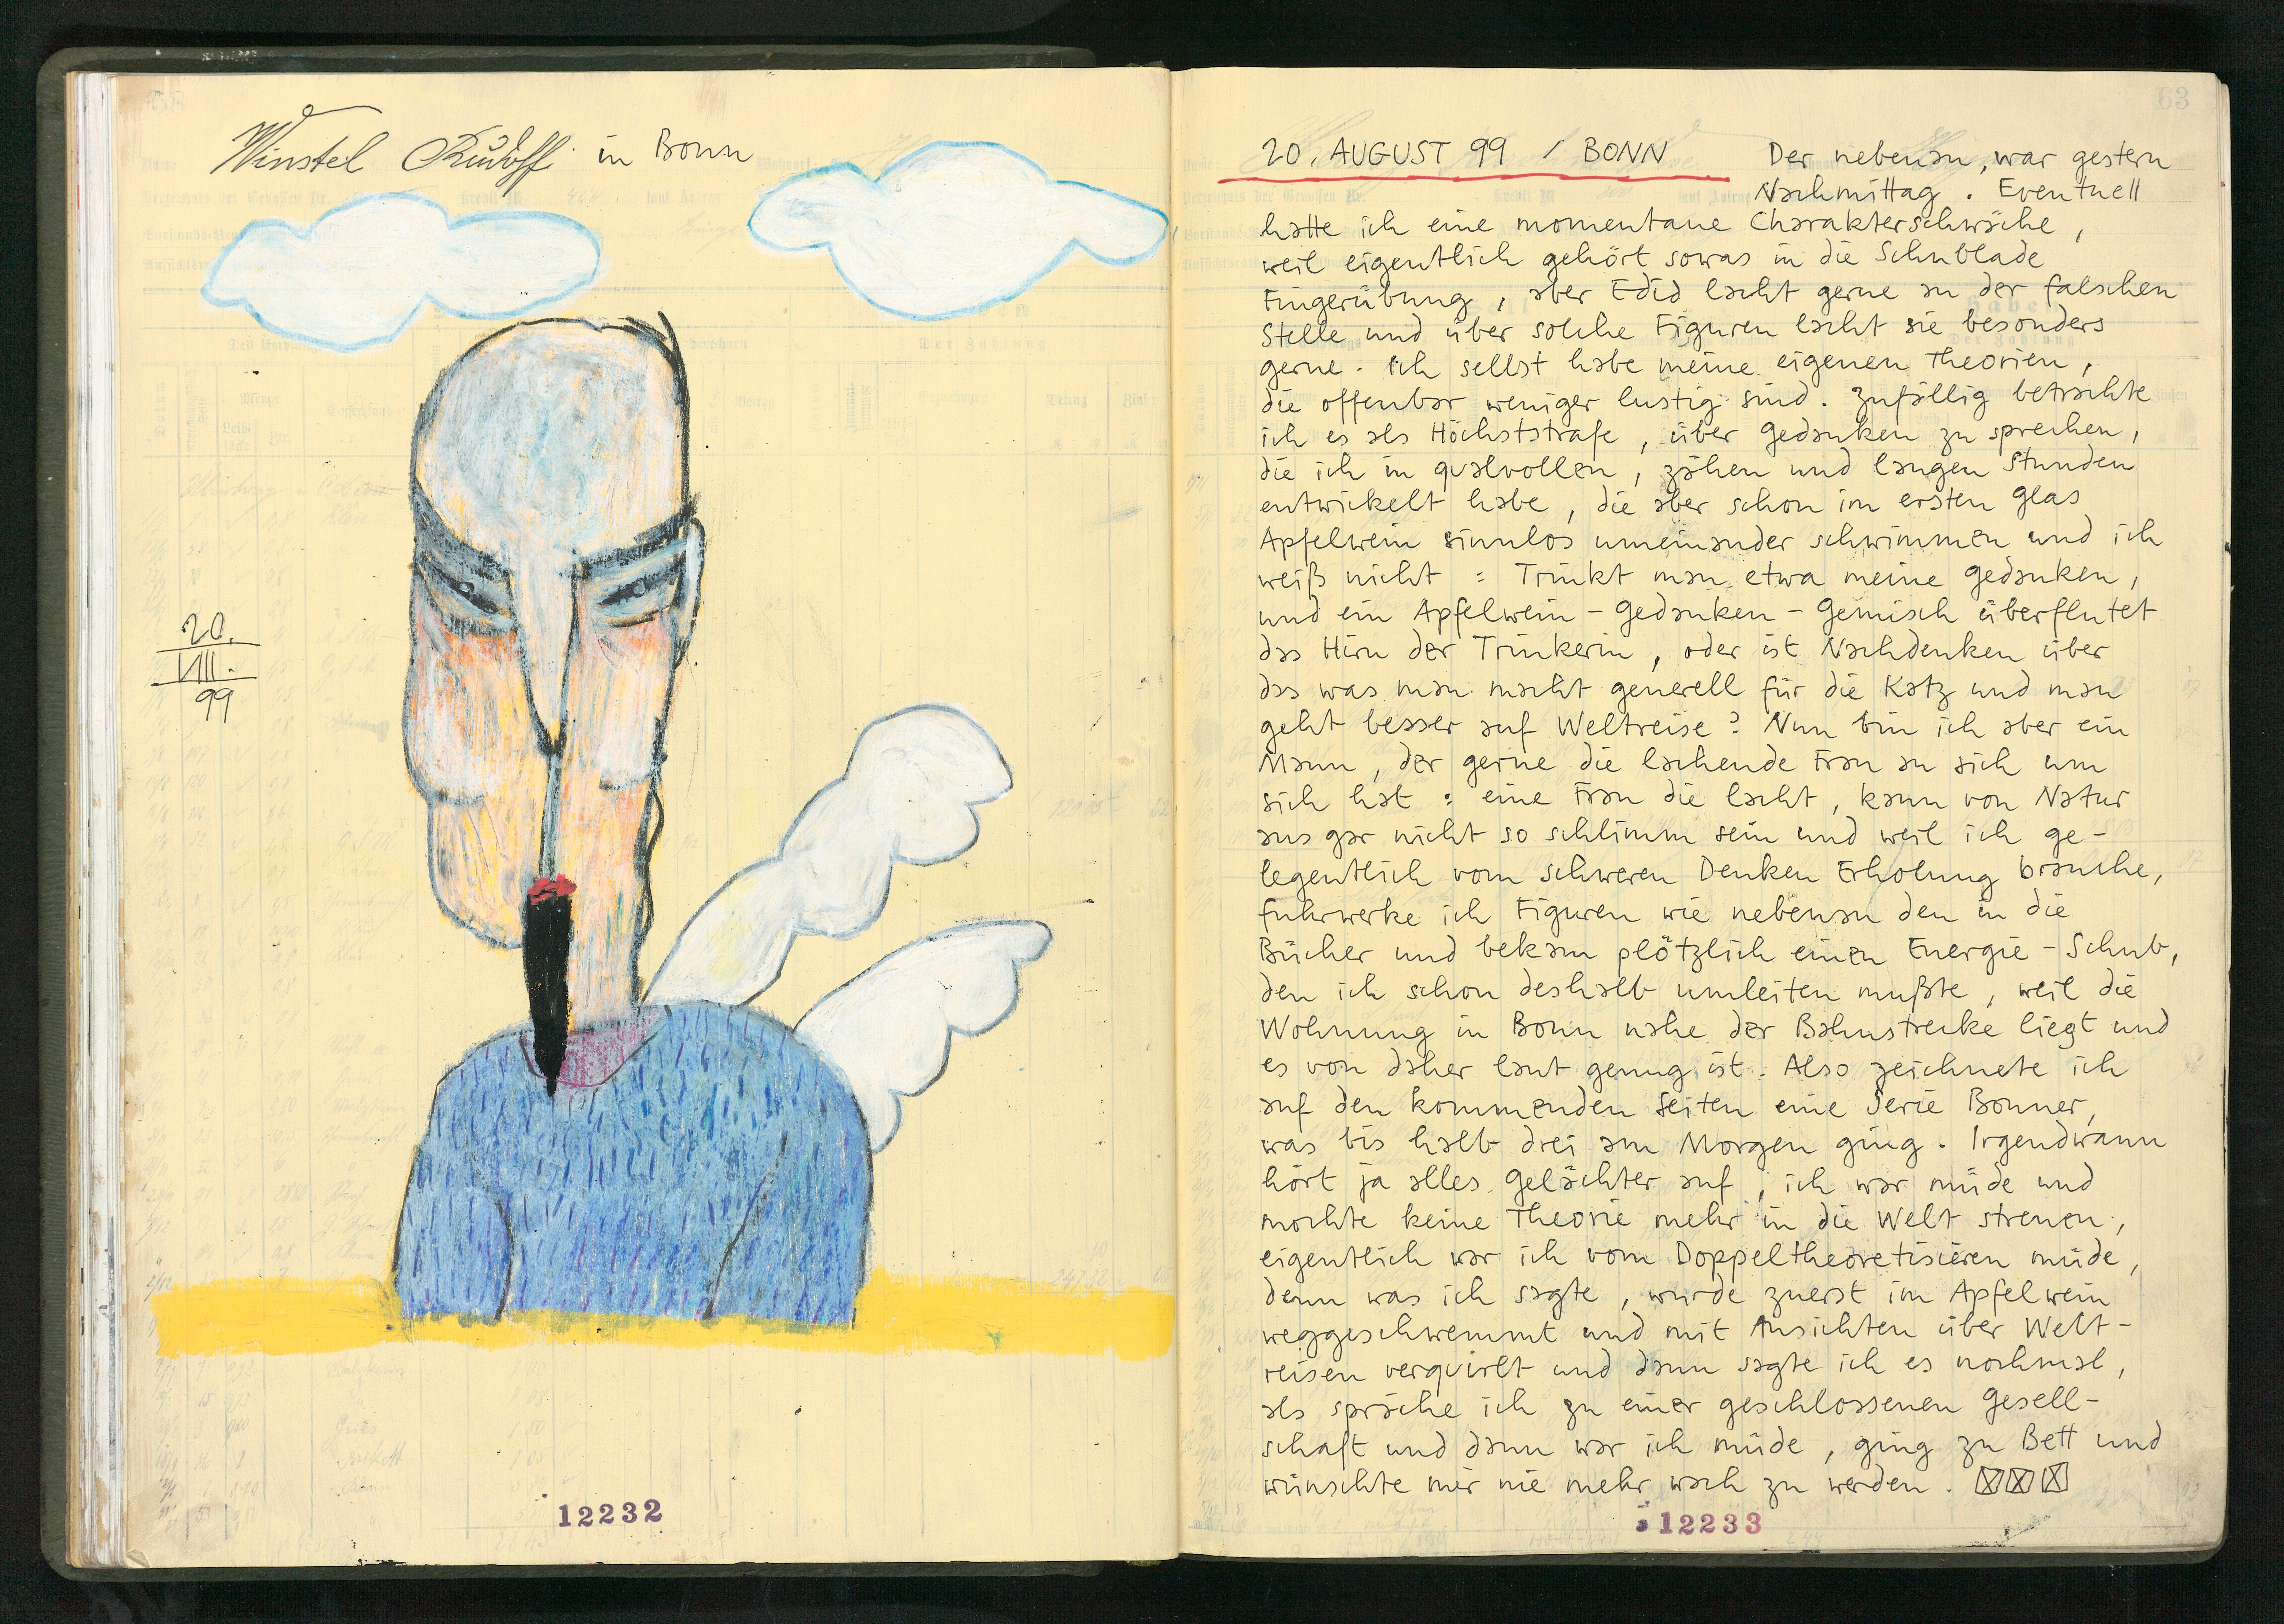 Winstel Rudolf in Bonn
20.
VIII.
99
12232
63
20. AUGUST 99 / BONN Der nebenan, war gestern
Nachmittag. Eventuell
hatte ich eine momentane Charakterschwäche,
weil eigentlich gehört sowas in die Schublade
Fingerübung, aber Edid lacht gerne an der falschen
Stelle und über solche Figuren lacht sie besonders
gerne. Ich selbst habe meine eigenen Theorien,
die offenbar weniger lustig sind. Zufällig betrachte
ich es als Höchststrafe, über Gedanken zu sprechen,
die ich in qualvollen, zähen und langen Stunden
entwickelt habe, die aber schon im ersten Glas
Apfelwein sinnlos umeinander schwimmen und ich
weiß nicht: Trinkt man etwa meine Gedanken,
und ein Apfelwein-Gedanken-Gemisch überflutet
das Hirn der Trinkerin, oder ist Nachdenken über
das was man macht generell für die Katz und man
geht besser auf Weltreise? Nun bin ich aber ein
Mann, der gerne die lachende Frau an sich um
sich hat: eine Frau die lacht, kann von Natur
aus gar nicht so schlimm sein und weil ich ge-
legentlich vom schweren Denken Erholung brauche,
fuhrwerke ich Figuren wie nebenan den in die
Bücher und bekam plötzlich einen Energie-Schub,
den ich schon deshalb umleiten mußte, weil die
Wohnung in Bonn nahe der Bahnstrecke liegt und
es von daher laut genug ist. Also zeichnete ich
auf den kommenden Seiten eine Serie Bonner,
was bis halb drei am Morgen ging. Irgendwann
hört ja alles Gelächter auf, ich war müde und
mochte keine Theorie mehr in die Welt streuen,
eigentlich war ich vom Doppeltheoretisieren müde,
denn was ich sagte, wurde zuerst im Apfelwein
weggeschwemmt und mit Ansichten über Welt-
reisen verquirlt und dann sagte ich es nochmal,
als spräche ich zu einer geschlossenen Gesell-
schaft und dann war ich müde, ging zu Bett und
wünschte mir nie mehr wach zu werden.
12233